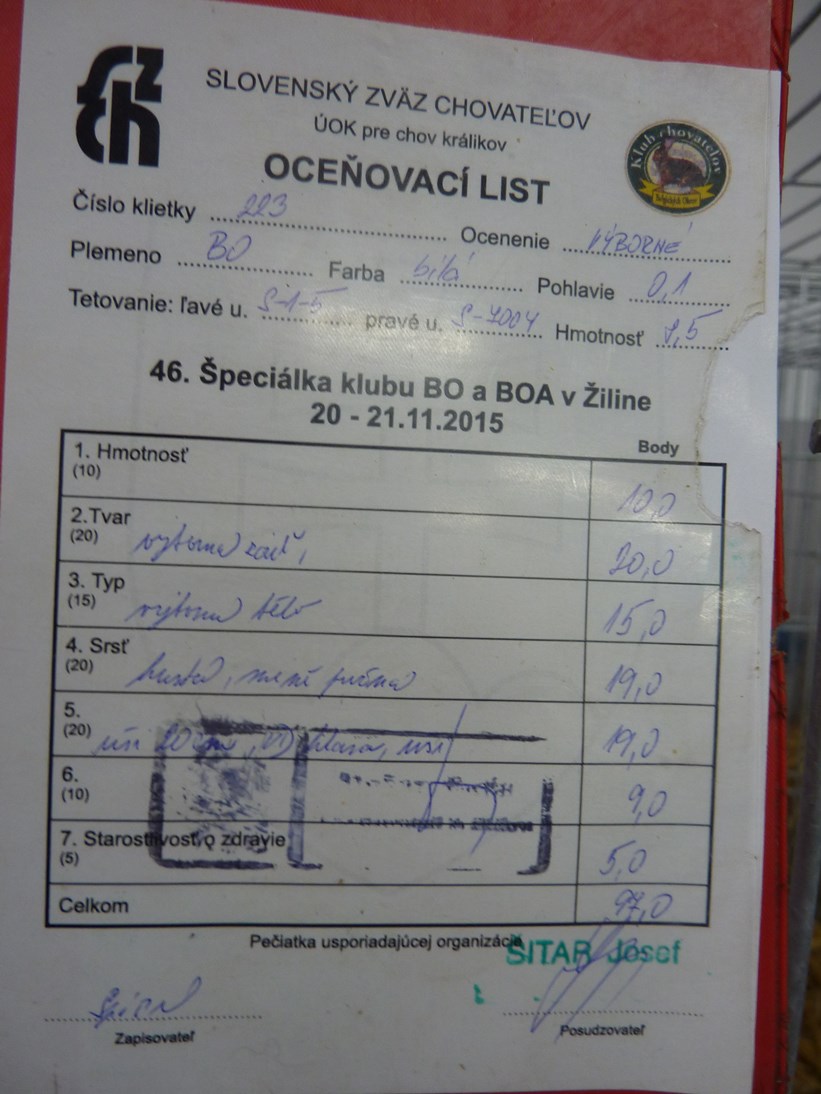 SZCH
SLOVENSKÝ ZVÄZ CHOVATEĽOV
ÚOK pre chov králikov
Klub chovateľov
OCEŇOVACÍ LIST
Číslo klietky 223 Ocenenie VÝBORNÉ
Plemeno BO Farba bílá Pohlavie 0,1
Tetovanie: ľavé u. S-1-5 pravé u. S-7004 Hmotnosť 7,5
46. Špeciálka klubu BO a BOA v Žiline
20 - 21.11.2015
Body
1. Hmotnosť
(10) 10,0
2.Tvar
(20) výborná záď, 20,0
3. Typ
(15) 15,0
4. Srsť
(20) hustá, méně pružná 19,0
5.
(20) uši 20 cm 19,0
6.
(10) 9,0
7. Starostlivosť o zdravie
(5) 5,0
Celkom 97,0
Pečiatka usporiadajúcej organizácie
SITAR Josef
Zapisovateľ
Posudzovateľ